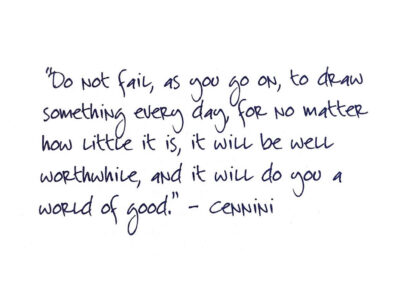 "Do not fail, as you go on, to draw
something every day, for no matter
how little it is, it will be well
worthwhile, and it will do you a
world of good." - Cennini